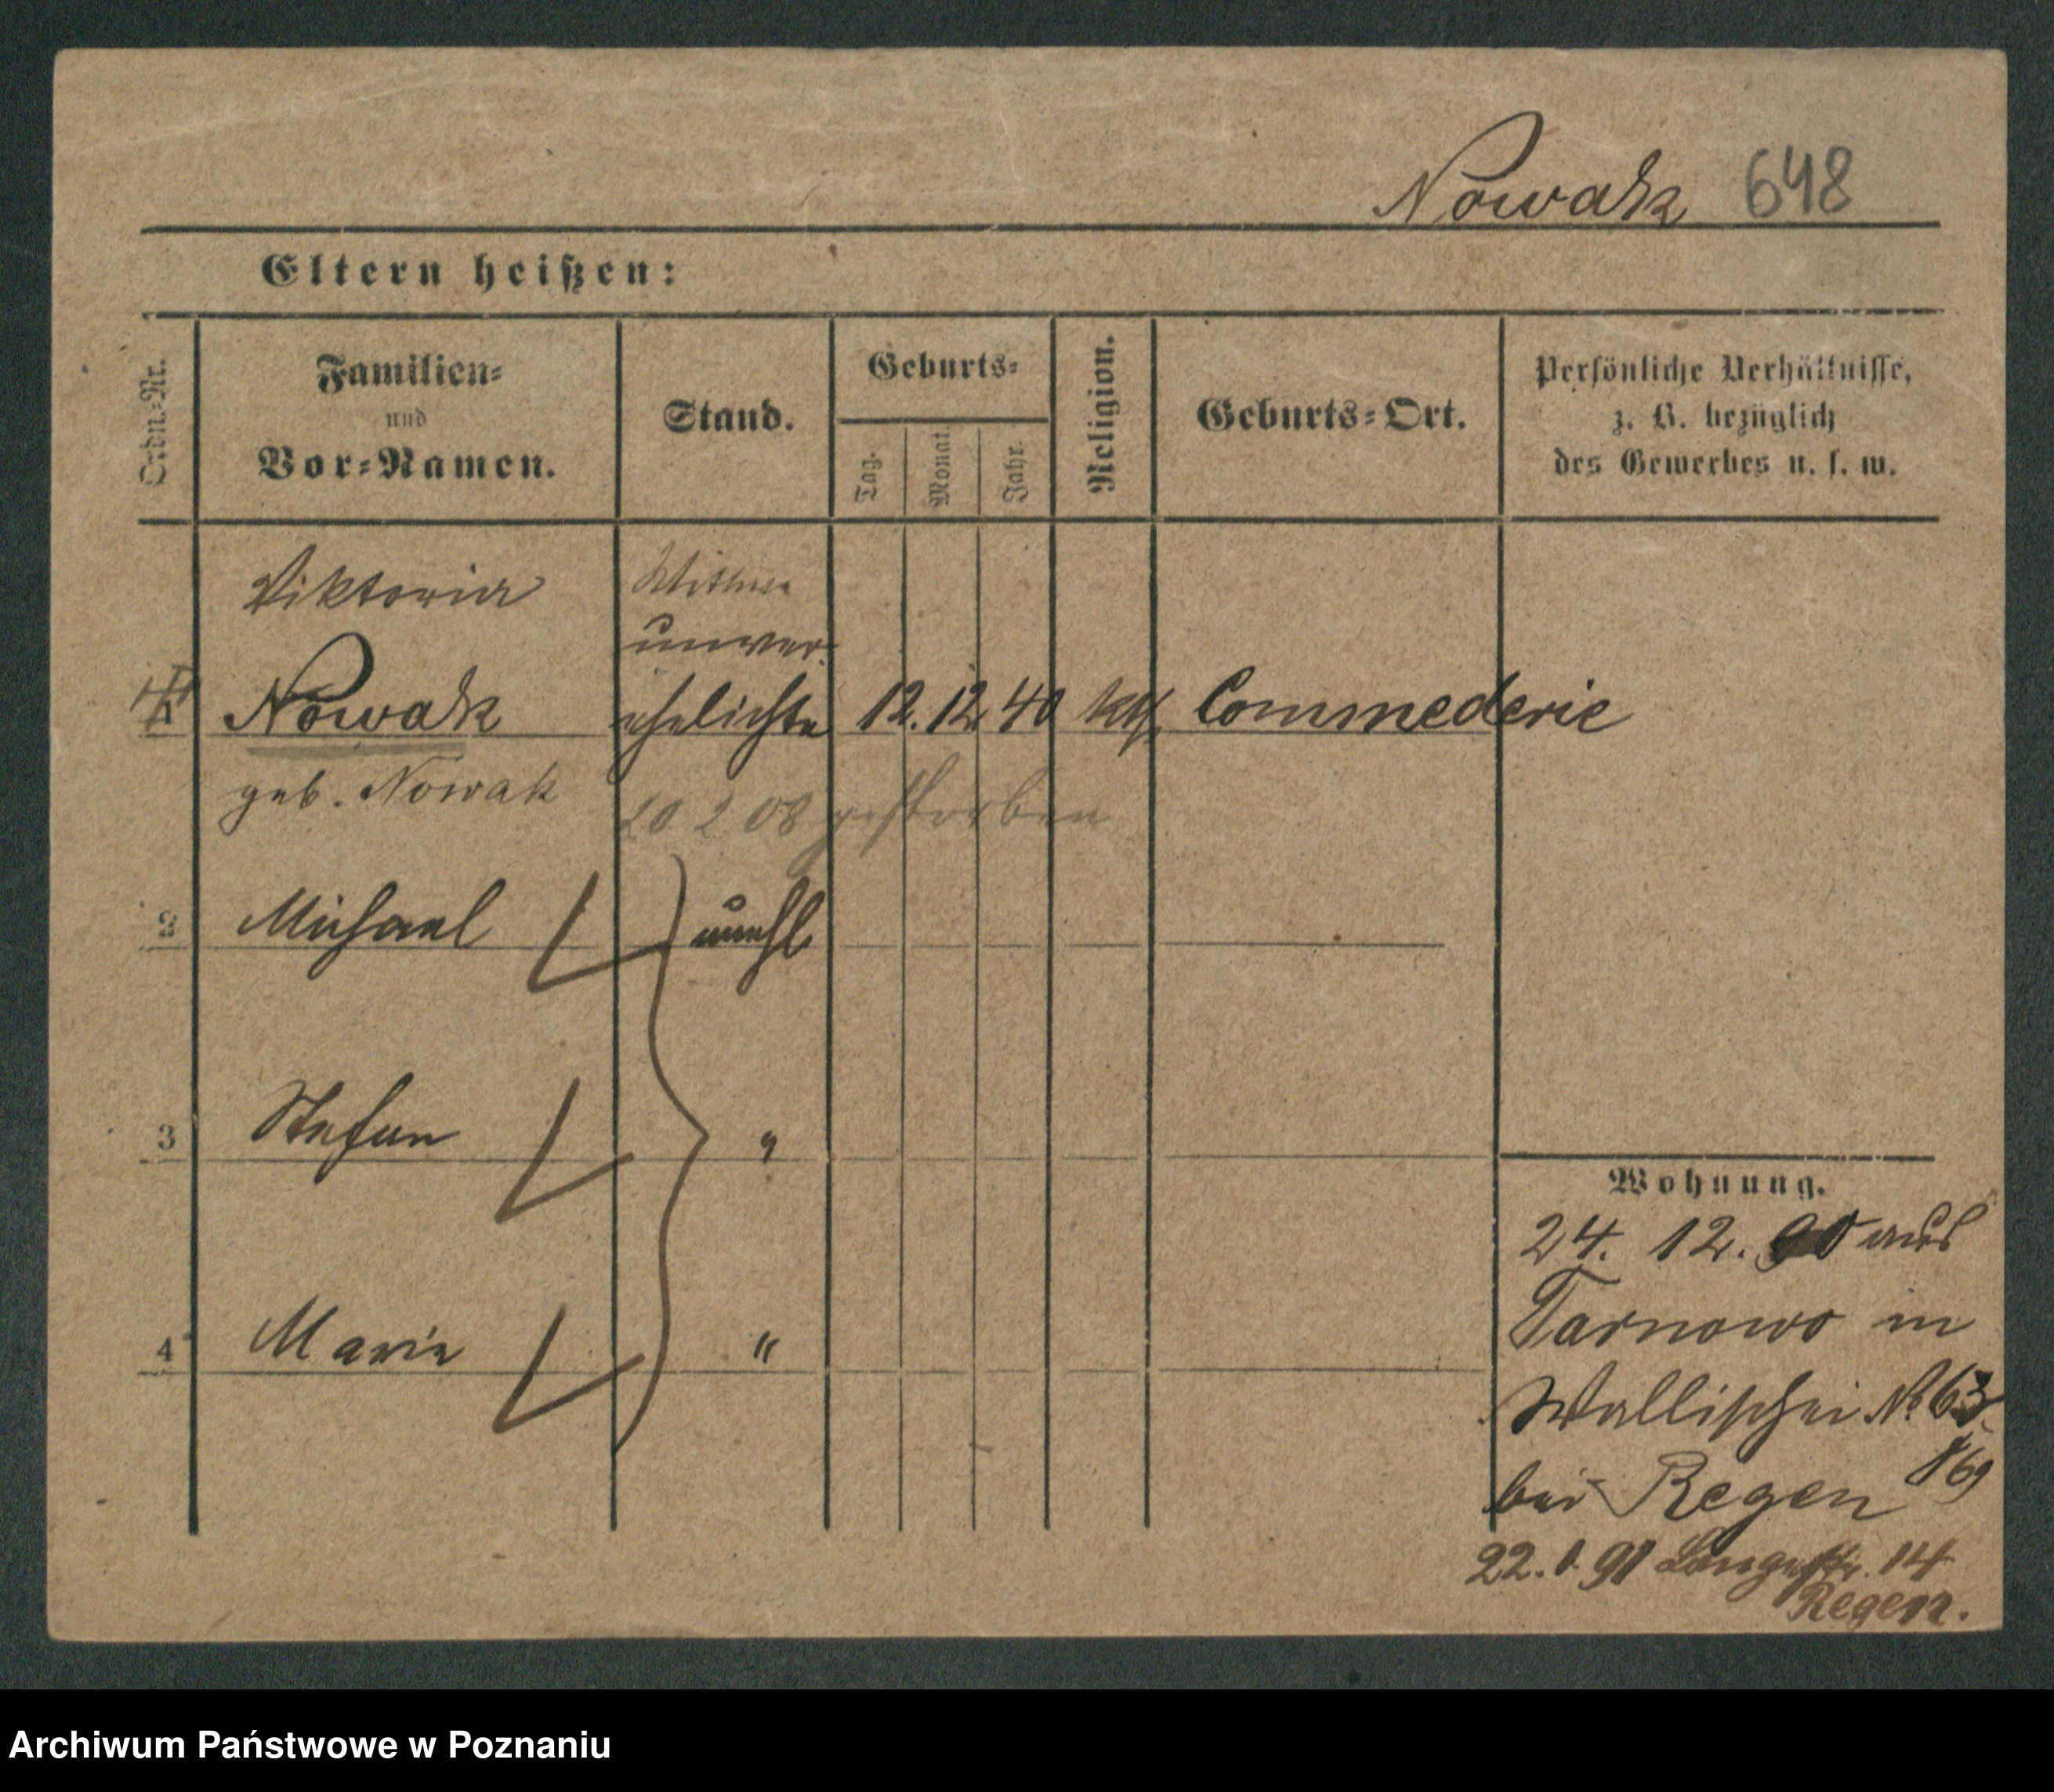 Nowak 648
Eltern heißen:
Ordn.=Nr.
Familien=
und
Vor=Namen.
Stand.
Geburts=
Tag.
Monat.
Jahr.
Religion.
Geburts=Ort.
Persönliche Verhältnisse,
z. B. bezüglich
des Gewerbes u. s. w.
Viktoria Wittwe
unver
1 Nowak ehelichte 12. 12 40 kth Commederie
geb. Nowak
20 2 08 gestorben
2 Michael unehl
3 Stefan "
4 Marie "
Wohnung.
24. 12. 90 aus
Tarnowo in
Wallischei No 63
bei Regen
22. 1 91 Langestr. 14
Regen.
Archiwum Państwowe w Poznaniu